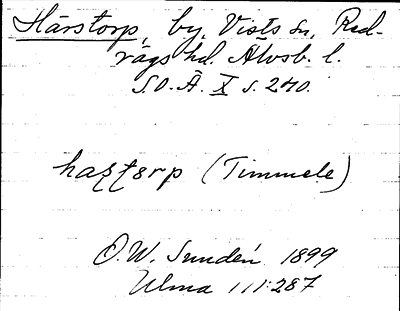 Härstorp, by, Vists sn, Red-
vägs hd. Älvsb. l.
S.O.Ä. X s. 240.
(Timmele)
O.W. Sundén 1899
Ulma 111:287